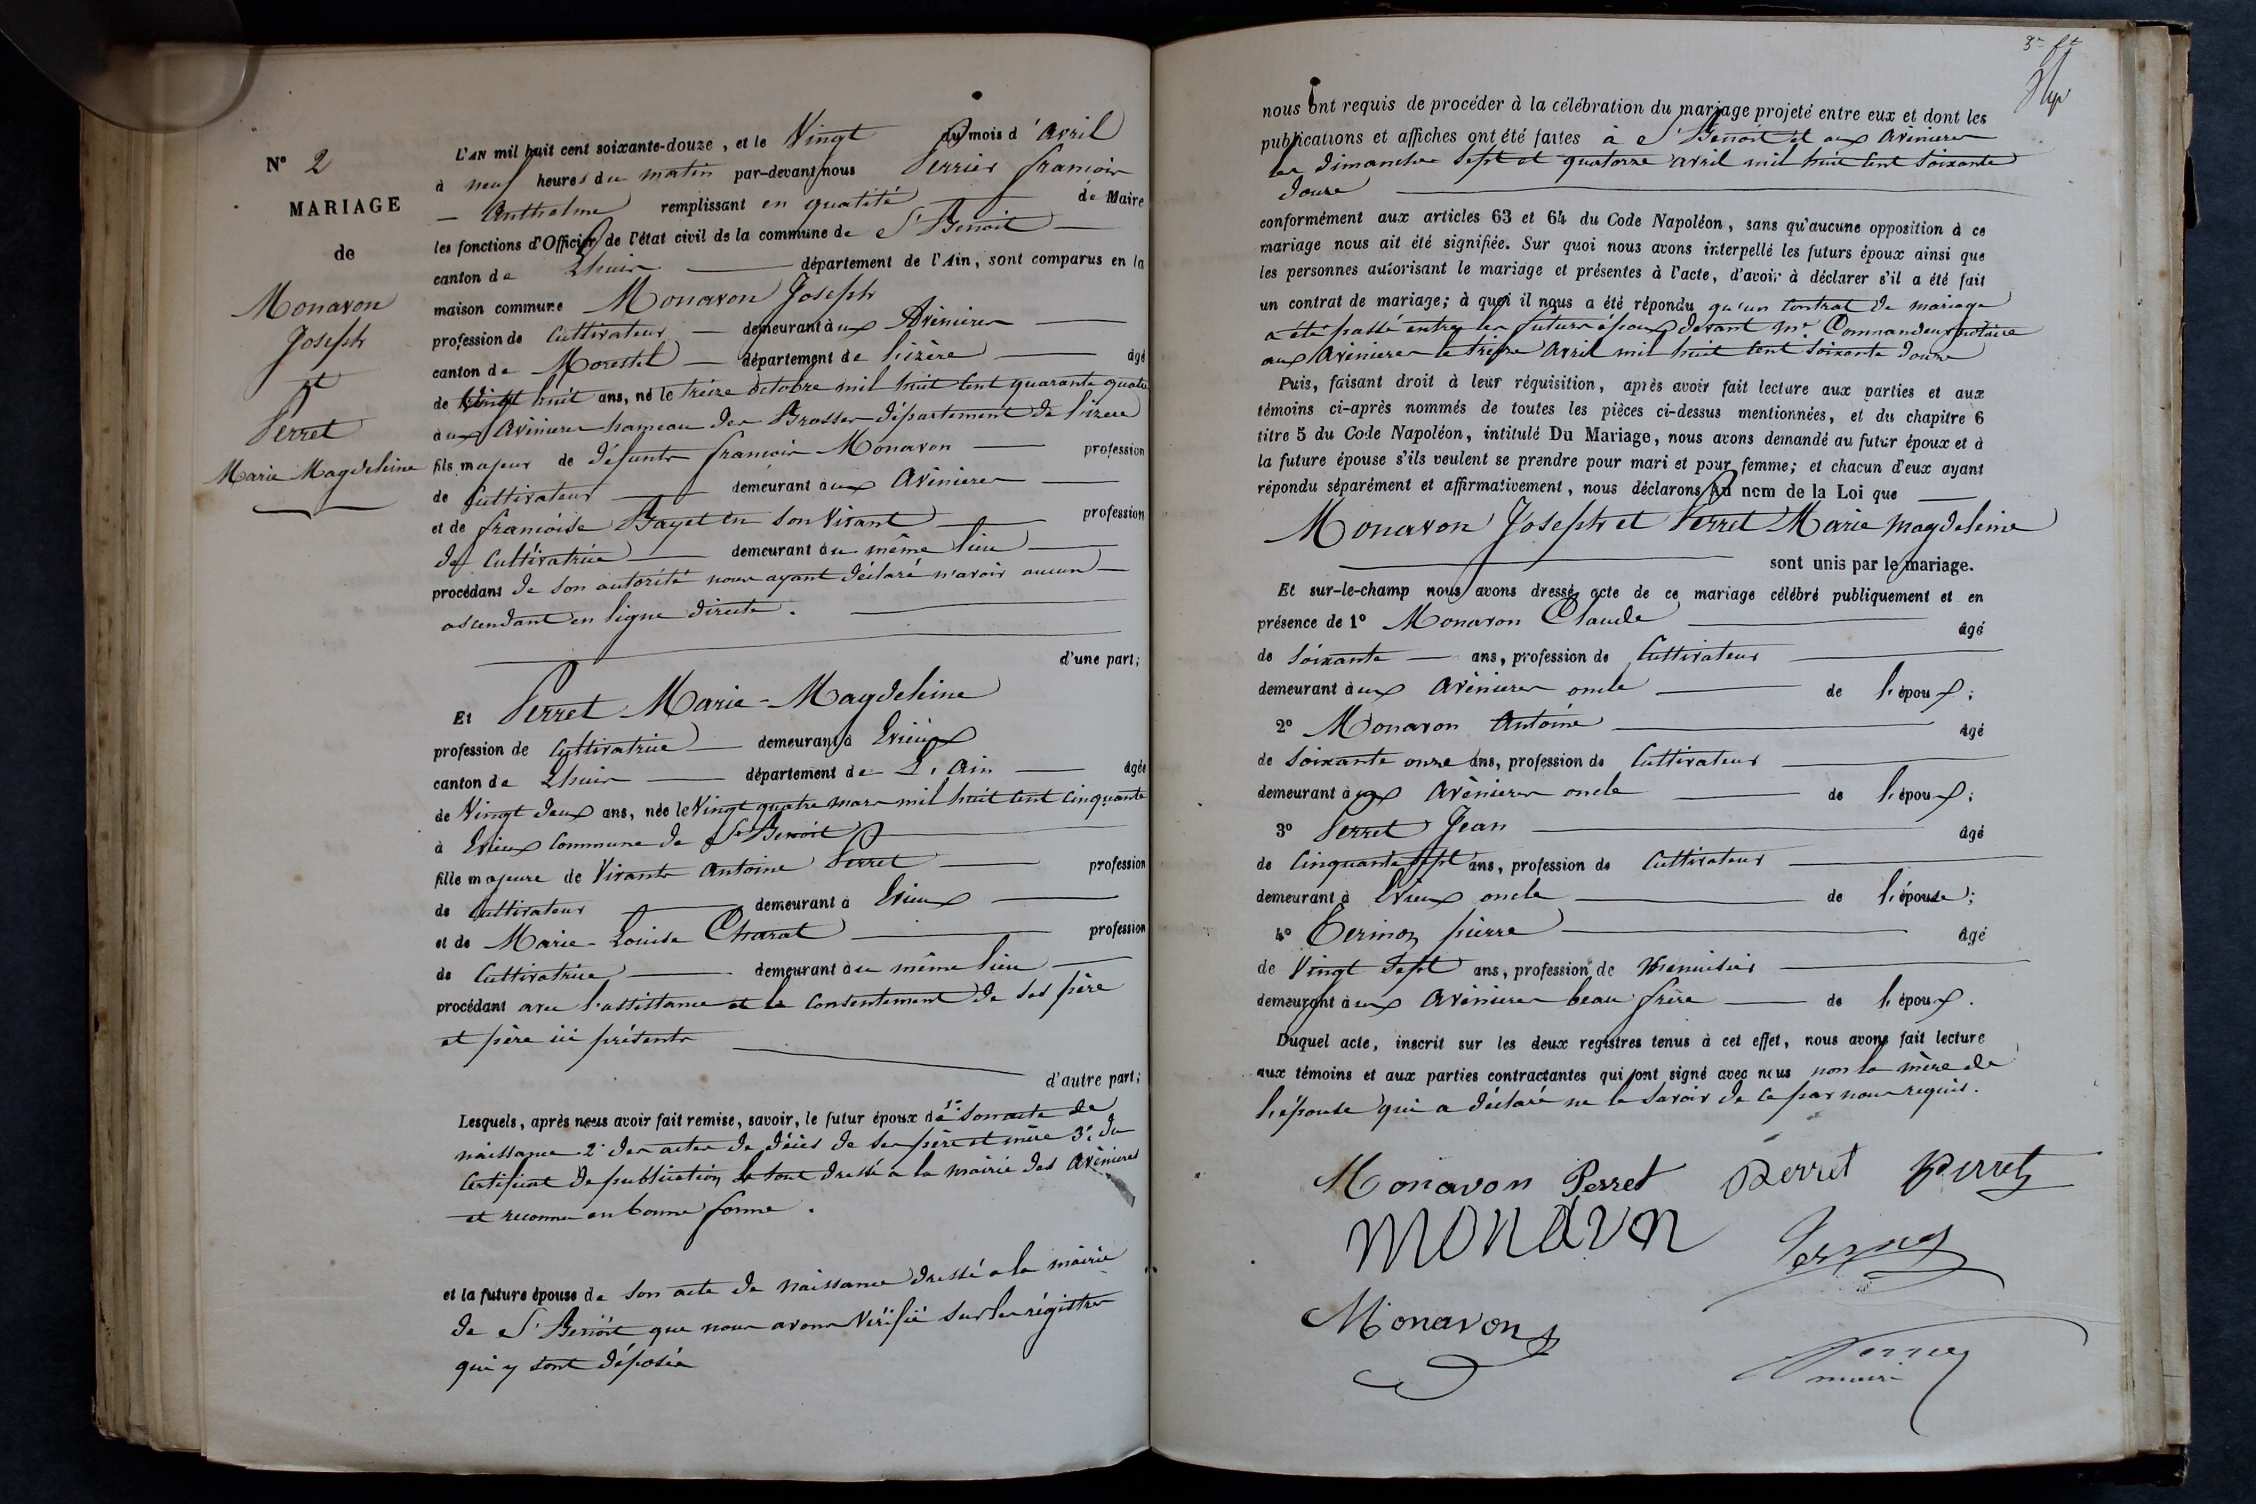 N° 2
MARIAGE
de
Monavon
Joseph
et
Perret
Marie Magdeleine
L'AN mil huit cent soixante-douze, et le Vingt du mois d'avril
à neuf heures du matin par-devant nous Perrier françois
Anthelme remplissant en qualité de Maire
les fonctions d'Officier de l'état civil de la commune de St Benoit
canton de Lhuis département de l'Ain, sont comparus en la
maison commune Monavon Joseph
profession de Cultivateur demeurant aux Avenieres
canton de Morestel département de l'izère âgé
de vingt huit ans, né le treize octobre mil huit cent quarante quatre
aux Avenieres hameau des Brosses département de l'izere
fils majeur de défunts françois Monavon profession
de Cultivateur demeurant aux Avenieres
et de françoise Bayet en son vivant profession
de Cultivatrice demeurant au même lieu
procédant de son autorité nous ayant déclaré n'avoir aucun
ascendant en ligne directe.
d'une part;
Et Perret Marie-Magdeleine
profession de Cultivatrice demeurant à Evieux
canton de Lhuis département de L'Ain âgée
de Vingt deux ans, née le Vingt quatre mars mil huit cent cinquante
à Evieux Commune de St Benoit
fille majeure de Vivants Antoine Perret profession
de Cultivateur demeurant à Evieux
et de Marie-Louise Charat profession
de Cultivatrice demeurant au même lieu
procédant avec l'assistance et le Consentement de ses père
et père ici présents
d'autre part;
Lesquels, après nous avoir fait remise, savoir, le futur époux de 1° son acte de
naissance 2° des actes de décès de ses père et mère 3° du
Certificat de publication le tout dressé a la mairie des Avenieres
et reconnu en bonne forme.
et la future épouse de son acte de naissance dressé a la mairie
de St Benoit que nous avons vérifié sur les régistres
qui y sont déposés
nous ont requis de procéder à la célébration du mariage projeté entre eux et dont les
publications et affiches ont été faites à St Benoit et aux Avenieres
les dimanches sept et quatorze avril mil huit cent soixante
douze
conformément aux articles 63 et 64 du Code Napoléon, sans qu'aucune opposition à ce
mariage nous ait été signifiée. Sur quoi nous avons interpellé les futurs époux ainsi que
les personnes autorisant le mariage et présentes à l'acte, d'avoir à déclarer s'il a été fait
un contrat de mariage; à quoi il nous a été répondu qu'un Contrat de mariage
a été passé entre les futurs époux devant Mr Commandeur notaire
aux Avenieres le treize Avril mil huit cent soixante douze
Puis, faisant droit à leur réquisition, après avoir fait lecture aux parties et aux
témoins ci-après nommés de toutes les pièces ci-dessus mentionnées, et du chapitre 6
titre 5 du Code Napoléon, intitulé Du Mariage, nous avons demandé au futur époux et à
la future épouse s'ils veulent se prendre pour mari et pour femme; et chacun d'eux ayant
répondu séparément et affirmativement, nous déclarons au nom de la Loi que
Monavon Joseph et Perret Marie Magdeleine
sont unis par le mariage.
Et sur-le-champ nous avons dressé acte de ce mariage célébré publiquement et en
présence de 1° Monavon Claude âgé
de soixante ans, profession de Cultivateur
demeurant aux Avenieres oncle de l'époux;
2° Monavon Antoine âgé
de soixante onze ans, profession de Cultivateur
demeurant aux Avenieres oncle de l'époux;
3° Perret Jean âgé
de Cinquante sept ans, profession de Cultivateur
demeurant à Evieux oncle de l'épouse;
4° pierre âgé
de Vingt sept ans, profession de menuisier
demeurant aux Avenieres beau frère de l'époux.
Duquel acte, inscrit sur les deux registres tenus à cet effet, nous avons fait lecture
aux témoins et aux parties contractantes qui ont signé avec nous non la mère de
l'épouse qui a déclaré ne le savoir de ce par nous requis.
Monavon Perret Perret Perret
monavon
Monavon
maire